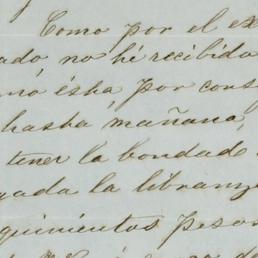 Como por el ex
ado no hé recibido
nó ésha, por cons
hasha mañana,
tener la bondad
gada la libranza
quinientos peso